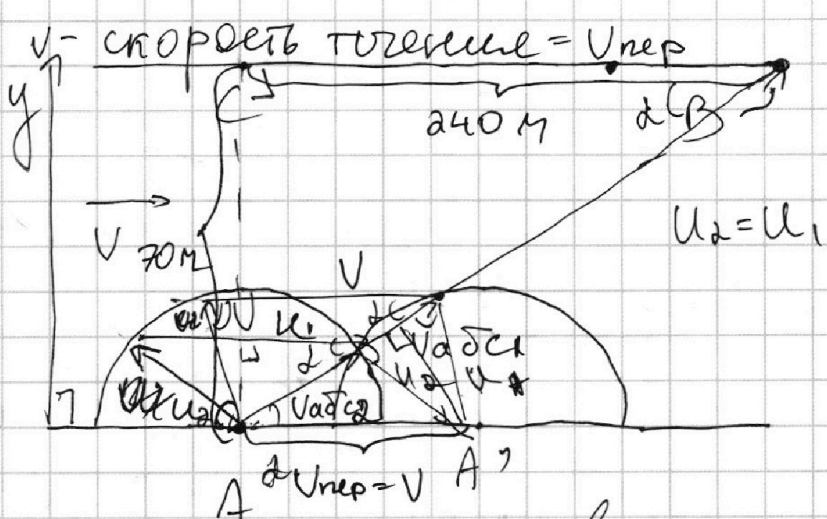 V - скорость течение = Vпер
y
C
240 м
α
B
V
70 м
U₂ = U₁
V
U₁
α
α
Vабс1
U₂
U₂
Vабс2
α
Vпер = V
A
A'